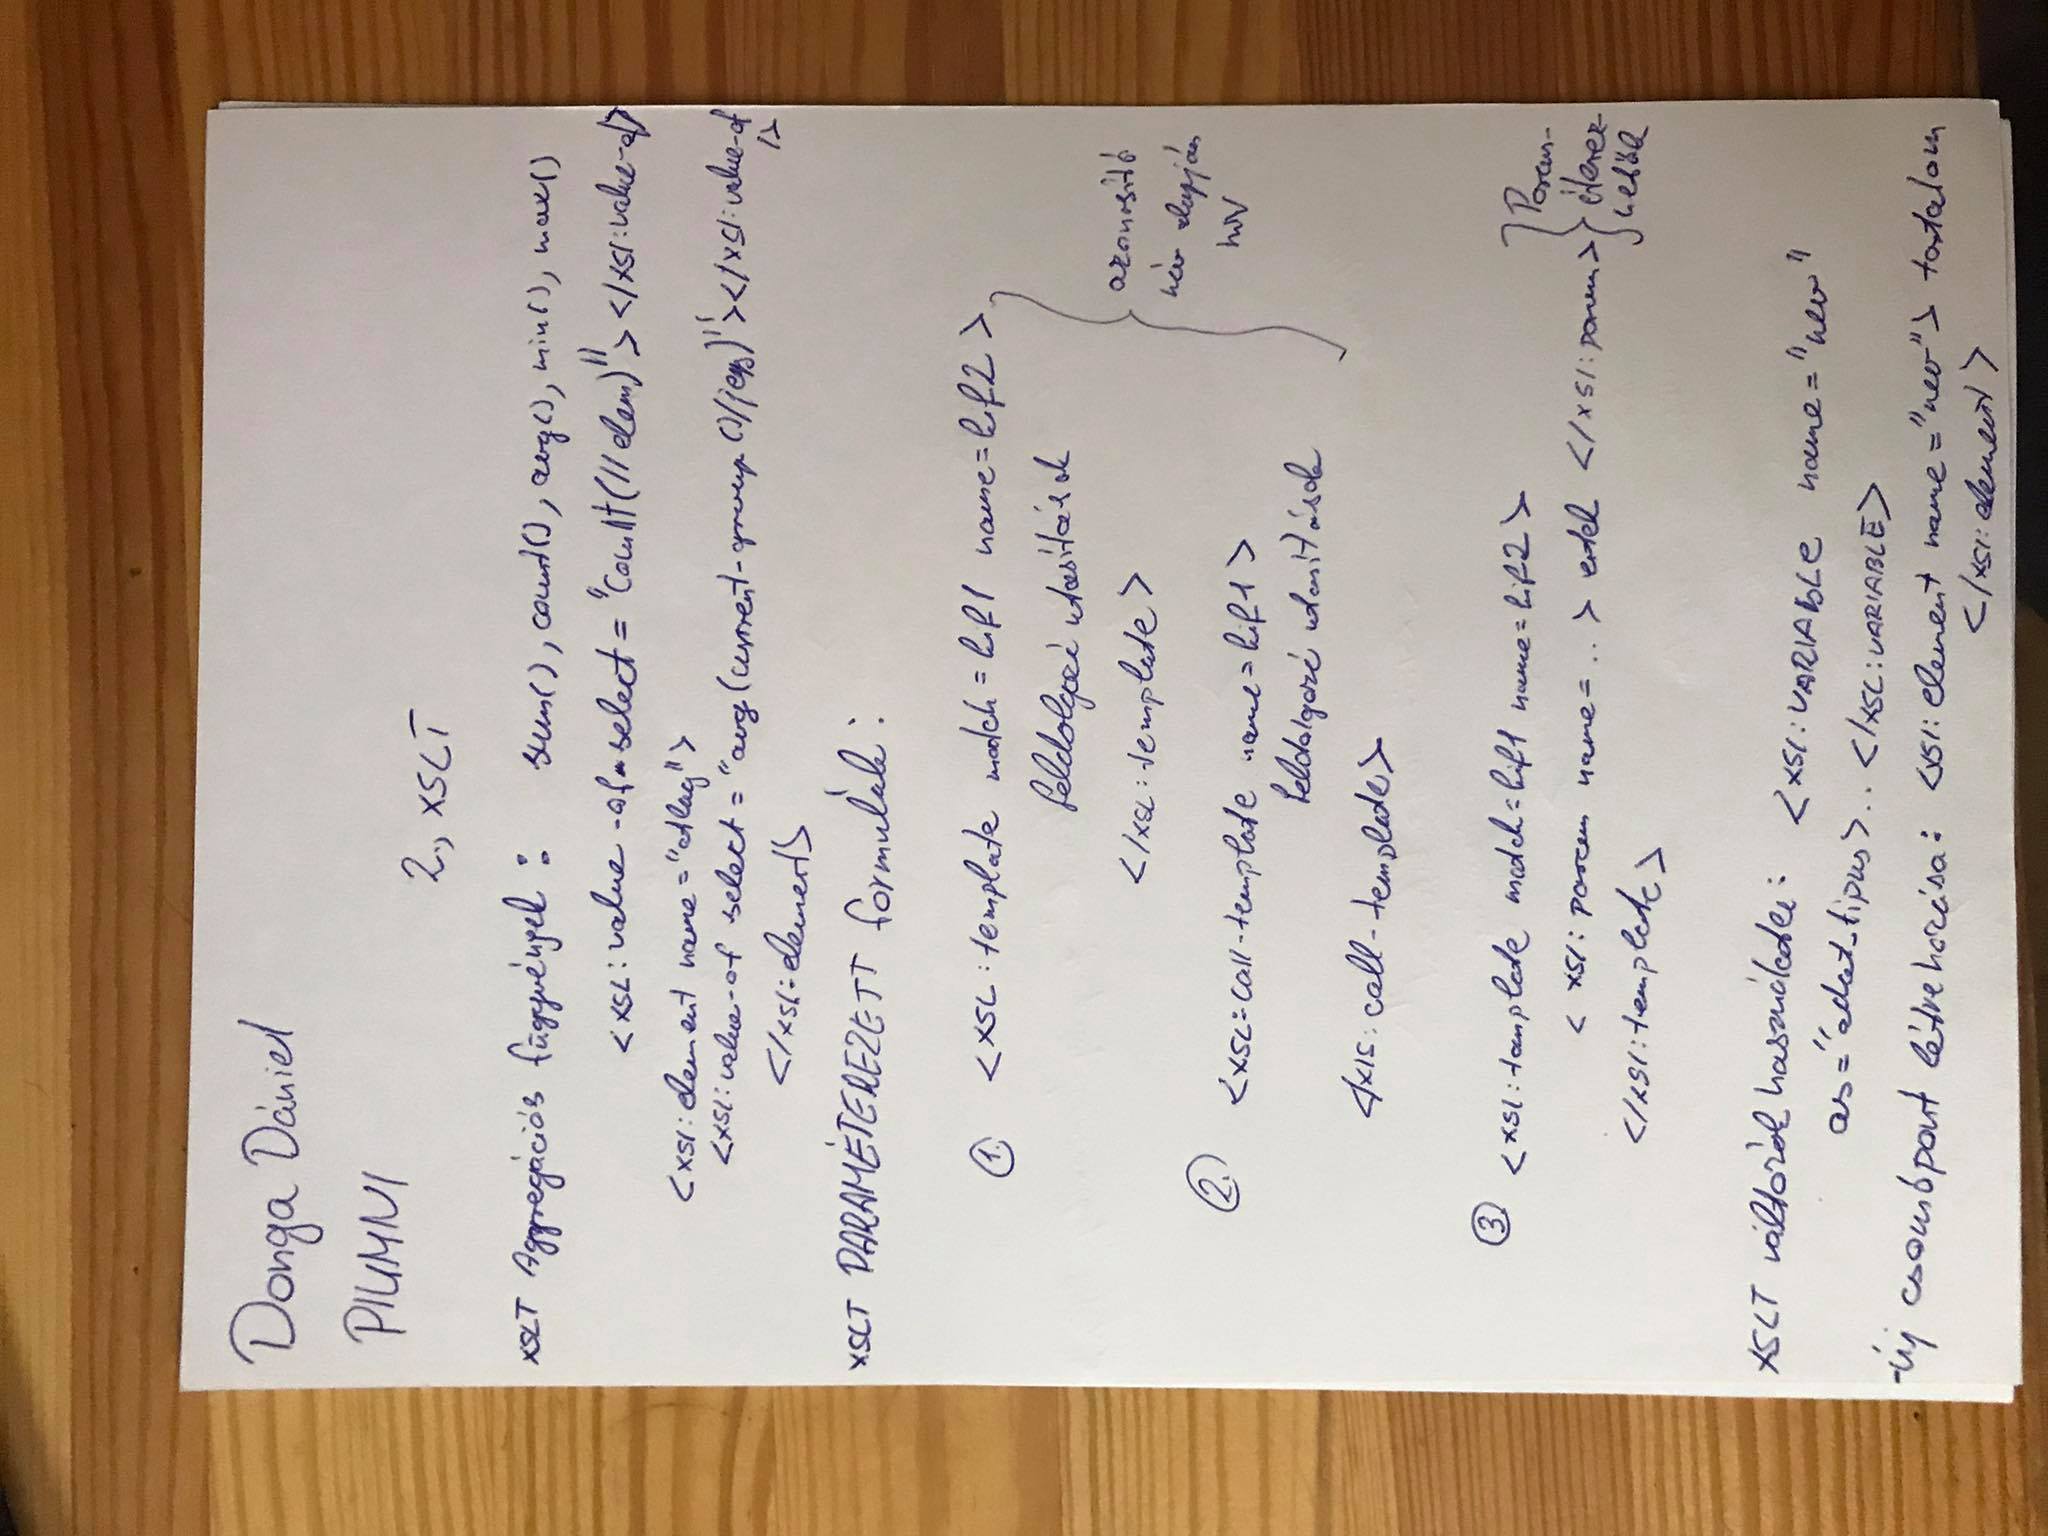 Donga Dániel
PIUMNI
2., XSLT
XSLT Aggregációs függvények : sum(), count(), avg(), min(), max()
<xsl:value-of-select = "count(//elem)"></xsl:value-of>
<xsl:element name="atlag">
<xsl:value-of select = "avg(current-group()/jegy)"></xsl:value-of
/>
</xsl:element>
XSLT PARAMÉTEREZETT formulák :
1. <xsl:template match=kif1 name=kif2>
feldolgozó utasítások
</xsl:template>
azonosító
név alapján
hív
2. <xsl:call-template name=kif1>
feldolgozó utasítások
</xls:call-template>
3. <xsl:template match=kif1 name=kif2>
<xsl:param name=..> ertek </xsl:param>
</xsl:template>
Param-
éterez-
hetők
XSLT változók használata: <xsl:VARIABLE name="nev"
as="adat-tipus>..</xsl:VARIABLE>
-új csomópont létrehozása: <xsl:element name="nev"> tartalom
</xsl:element>